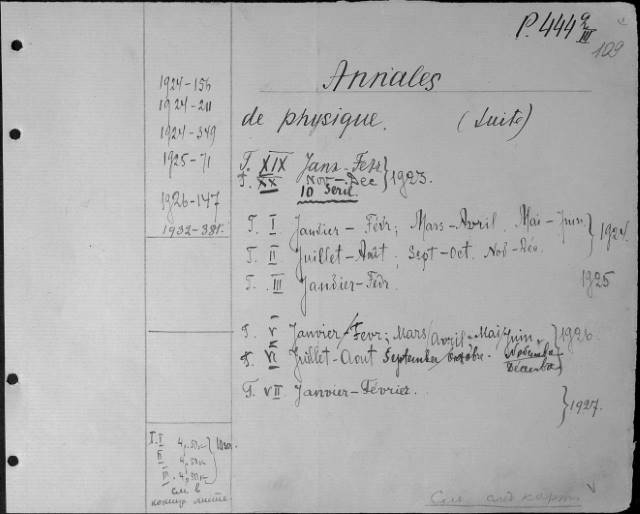 P. 444 a/III
109
Annales
de physique. (Suite)
1924-156
1924-211
1924-349
1925-71
1926-147
1932-381.
T. XIX Janv-Fevr } 1923.
T. XX Nov-Dec
10 Serie.
T. I Janvier-Févr; Mars-Avril. Mai-Juin. } 1924
T. II Juillet-Août; Sept-Oct. Nov-Déc.
T. III Janvier-Fevr. 1925
T. V Janvier/Fevr; Mars/Avril-Mai/Juin. } 1926
T. VI Juillet-Aout September/Octobre. Novembre/Décembre
T. VII Janvier-Février. } 1927.
T. I
II 4,50к
III 4,50к
см в
конце листа.
См. след карт.